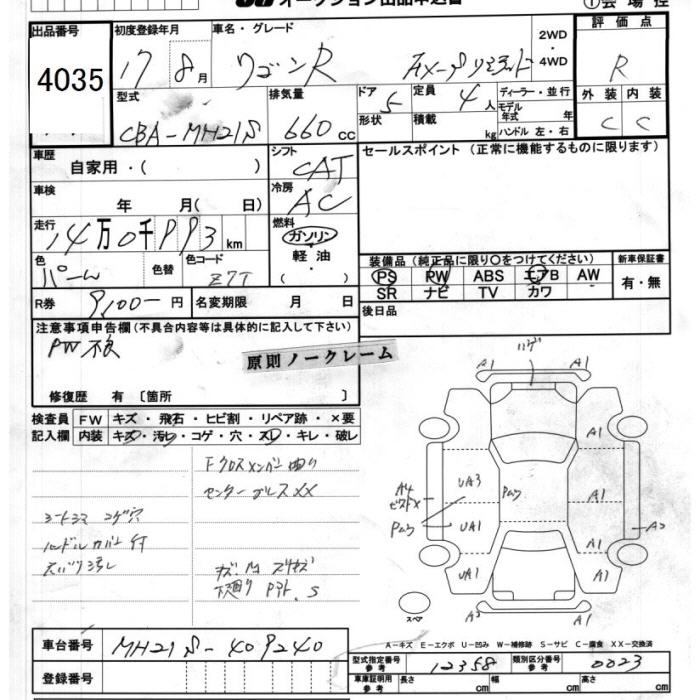 オークション出品申込書
①会場控
出品番号
初度登録年月
車名・グレード
2WD
・
4WD
評価点
4035
17
8月
ワゴンR
R
型式
排気量
ドア
定員
4人
ディーラー・並行
外装
内装
CBA-MH21S
660cc
5
形状
積載
kg
モデル年式
年
ハンドル 左・右
C
C
車歴
自家用・( )
シフト
CAT
セールスポイント (正常に機能するものに限ります)
車検
年 月( 日)
冷房
AC
走行
14万0千993km
燃料
ガソリン
・
軽油
・
( )
色
パール
色替
色コード
Z7T
装備品 (純正品に限り○をつけてください)
新車保証書
PS PW ABS エアB AW
SR ナビ TV カワ
有・無
R券
9,100-円
名変期限 月 日
後日品
注意事項申告欄 (不具合内容等は具体的に記入して下さい)
PW不良
原則ノークレーム
修復歴 有〔箇所 〕
検査員
記入欄
FW
キズ・飛石・ヒビ割・リペア跡・×要
内装
キズ・汚れ・コゲ・穴・スレ・キレ・破レ
Fクロスメンバー曲り
シートヨゴ コゲ穴
ハンドルカバー付
A1
A1
A1
UA3
A1
UA1
A2
UA1
A1
A2
A1
スペア
A-キズ E-エクボ U-凹み W-補修跡 S-サビ C-腐食 XX-交換済
車台番号
MH21S-409240
型式指定番号
参考
12358
類別区分番号
参考
0023
登録番号
車庫証明用
参考
長さ
cm
幅
cm
高さ
cm